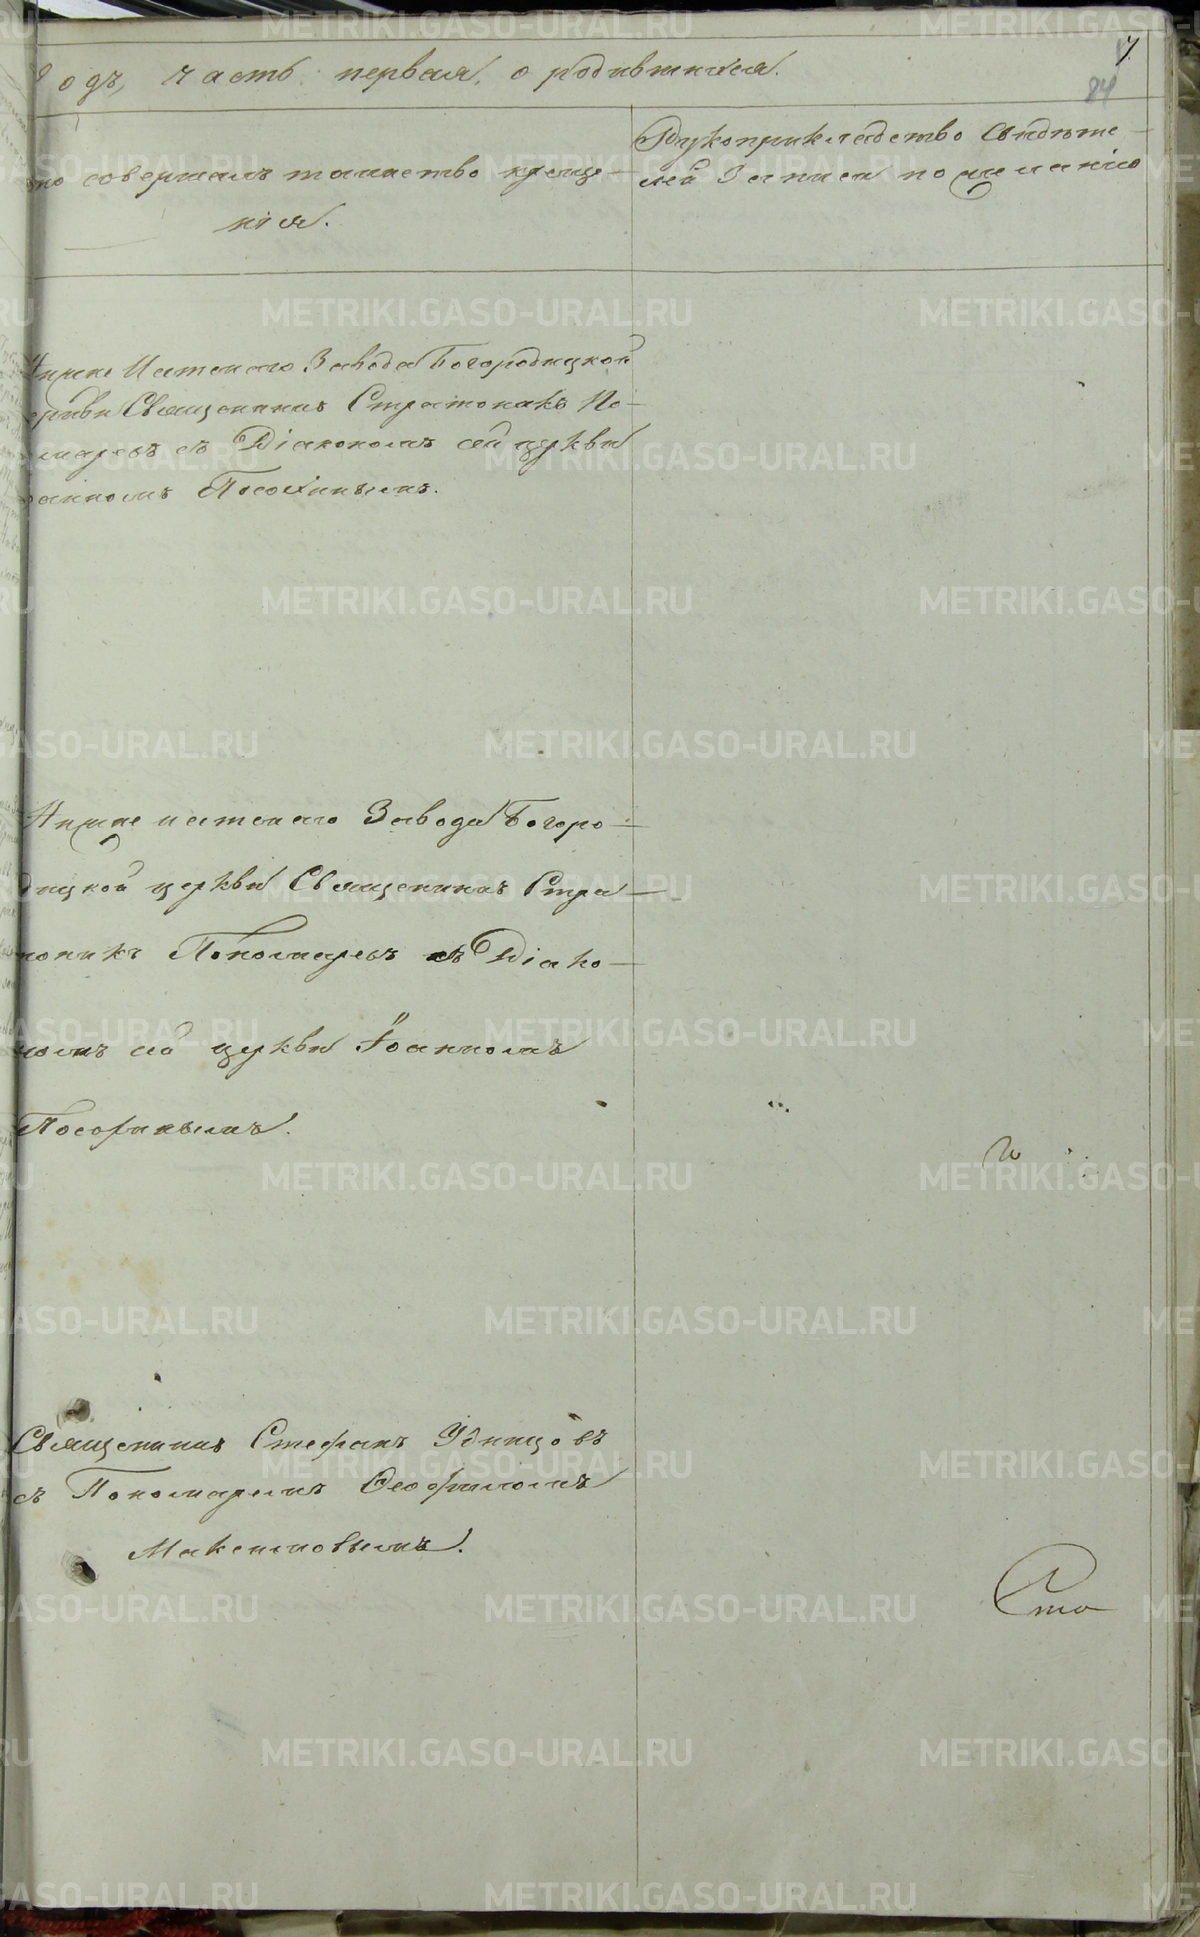 7
84
Годъ, часть первая, о родившихся.
Кто совершалъ таинство креще-
нія.
Рукоприкладство свидѣте-
лей записи по желанію
Завода Богородицкой
Церкви Священникъ Стратоникъ По-
номаревъ съ Діакономъ сей церкви
Іоанномъ Посохинымъ.
Завода Богоро-
дицкой церкви Священникъ Стра-
тоникъ Пономаревъ съ Діако-
номъ сей церкви Іоанномъ
Посохинымъ.
Священникъ Стефанъ Удинцовъ
съ Пономаремъ Феофиломъ
Максимовымъ.
Сто
METRIKI.GASO-URAL.RU